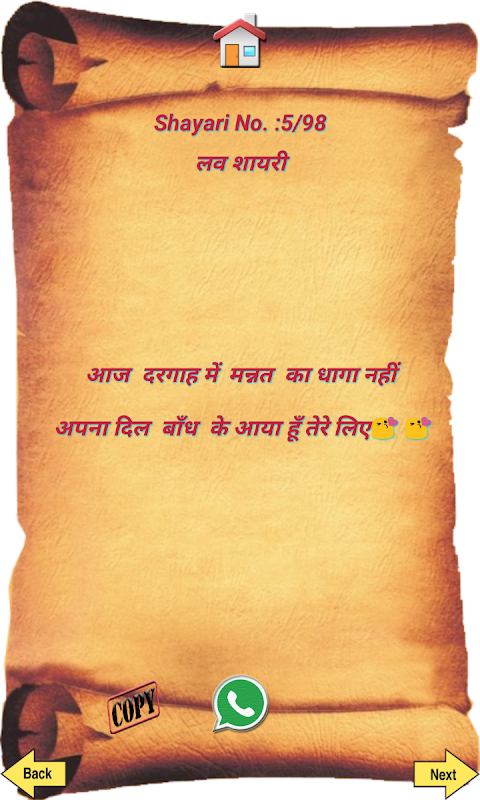 Shayari No. :5/98
लव शायरी
आज दरगाह में मन्नत का धागा नहीं
अपना दिल बाँध के आया हूँ तेरे लिए😘 😘
COPY
Back
Next